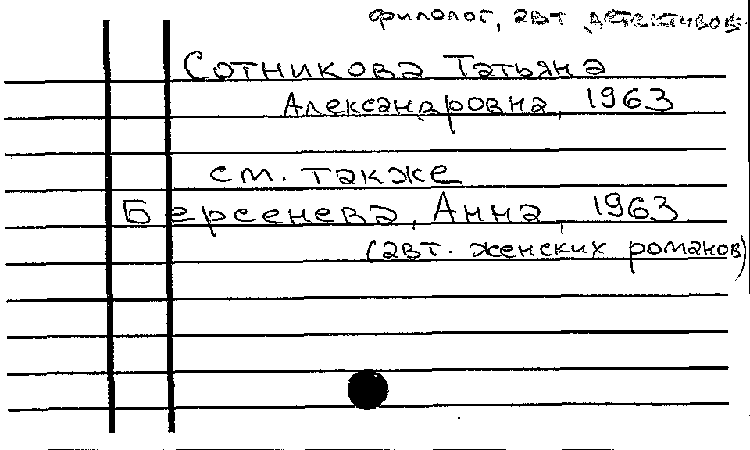 филолог, авт детективов
Сотникова Татьяна
Александровна, 1963
см. также
Берсенева, Анна, 1963
(авт. женских романов)